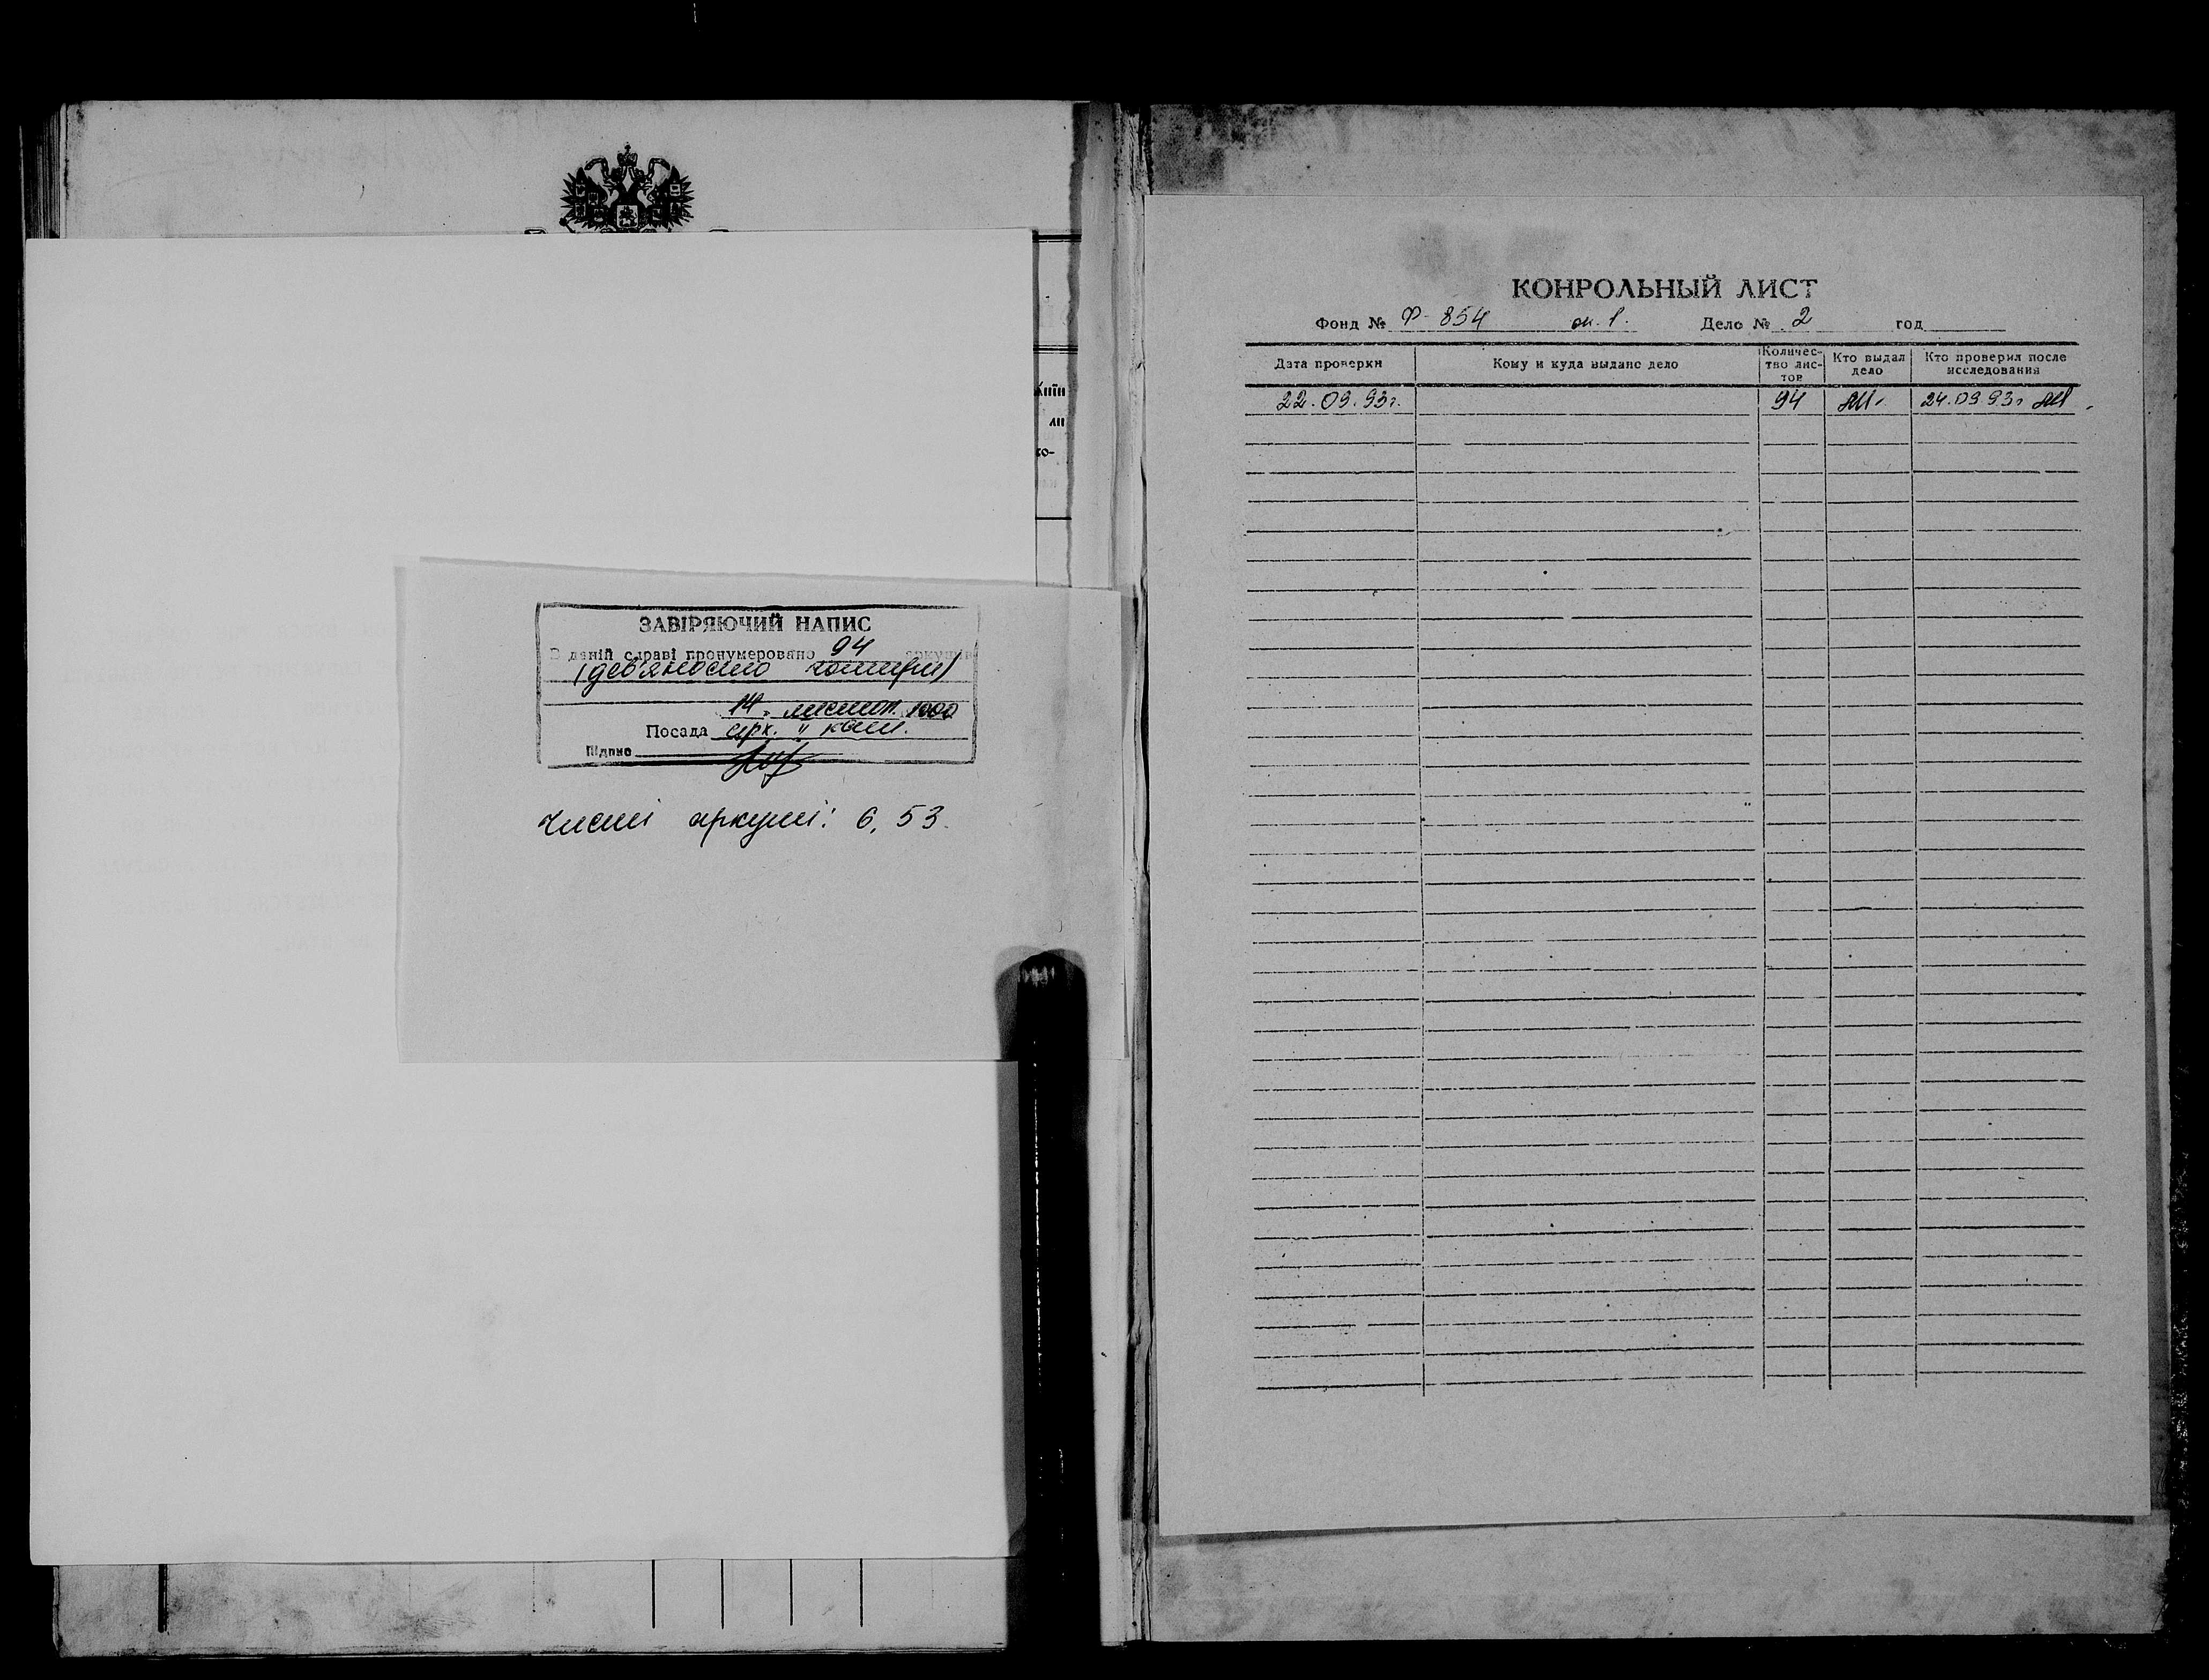 Київ
ли
ко-
ЗАВІРЯЮЧИЙ НАПИС
В даній справі пронумеровано 94 аркушів
(дев'яносто чотири)
14 листоп. 2000
Посада арх. II кат.
Підпис
Чисті аркуші: 6, 53.
КОНРОЛЬНЫЙ ЛИСТ
Фонд № Ф-854 оп. 1. Дело № 2 год
Дата проверки Кому и куда выдано дело Количес-тво лис-тов Кто выдал дело Кто проверил после исследования
22.09.93г. 94 24.09.93г